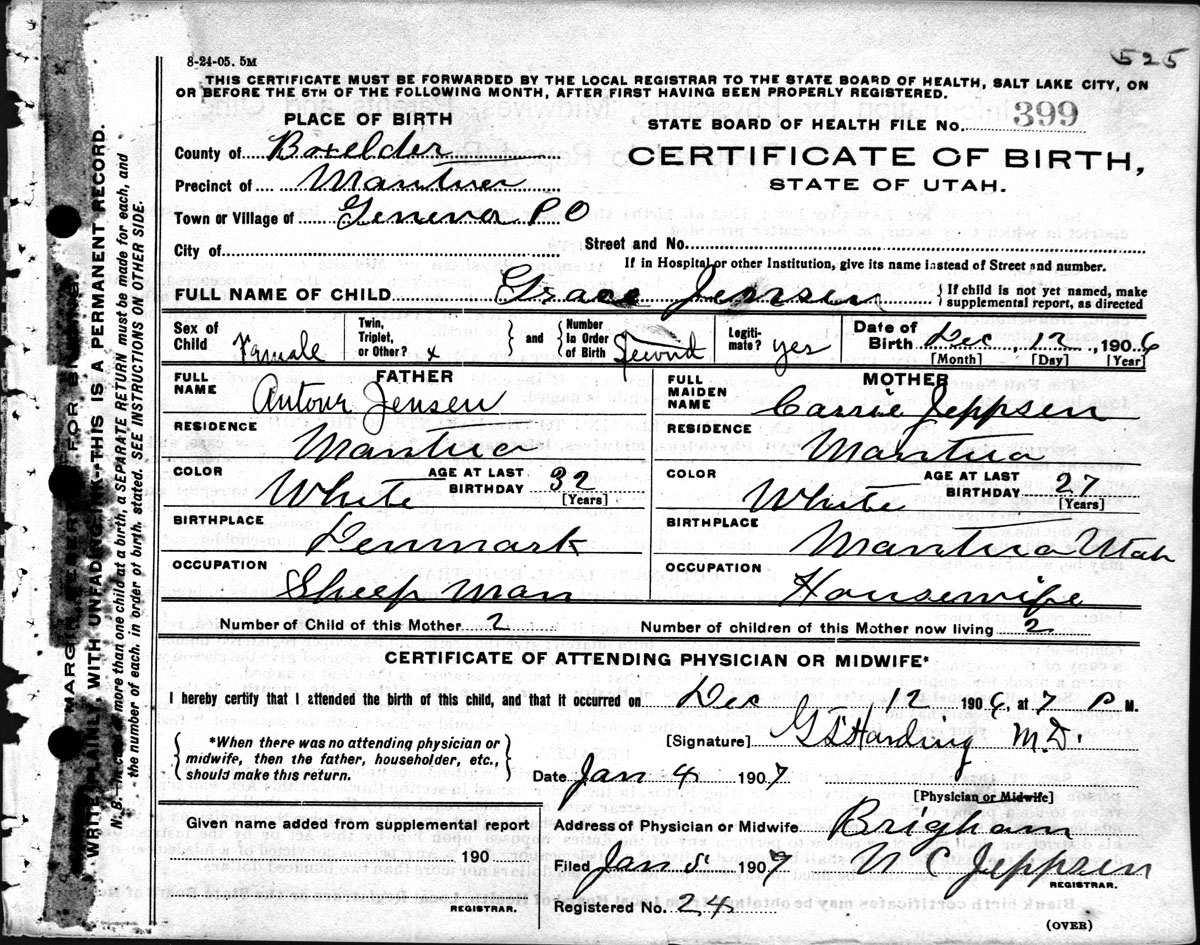 525
8-24-05. 5M
THIS CERTIFICATE MUST BE FORWARDED BY THE LOCAL REGISTRAR TO THE STATE BOARD OF HEALTH, SALT LAKE CITY, ON
OR BEFORE THE 5TH OF THE FOLLOWING MONTH, AFTER FIRST HAVING BEEN PROPERLY REGISTERED.
PLACE OF BIRTH
STATE BOARD OF HEALTH FILE No. 399
County of Boxelder
CERTIFICATE OF BIRTH,
Precinct of
STATE OF UTAH.
Town or Village of Geneva P O
City of
Street and No.
If in Hospital or other Institution, give its name instead of Street and number.
FULL NAME OF CHILD Grace Jensen { If child is not yet named, make
supplemental report, as directed
Sex of Child Female
Twin, Triplet, or Other? x } and { Number In Order of Birth Second
Legiti-mate? yes
Date of Birth Dec 12, 1906
[Month] [Day] [Year]
FATHER
FULL NAME Antour Jensen
RESIDENCE Mantua
COLOR White
AGE AT LAST BIRTHDAY 32 [Years]
BIRTHPLACE Denmark
OCCUPATION Sheep Man
MOTHER
FULL MAIDEN NAME Carrie Jeppsen
RESIDENCE Mantua
COLOR White
AGE AT LAST BIRTHDAY 27 [Years]
BIRTHPLACE Mantua Utah
OCCUPATION Housewife
Number of Child of this Mother 2
Number of children of this Mother now living 2
CERTIFICATE OF ATTENDING PHYSICIAN OR MIDWIFE*
I hereby certify that I attended the birth of this child, and that it occurred on Dec 12 1906, at 7 P M.
{ *When there was no attending physician or
midwife, then the father, householder, etc.,
should make this return. }
[Signature] G L Harding M.D.
Date Jan 4 1907
[Physician or Midwife]
Given name added from supplemental report
190
REGISTRAR.
Address of Physician or Midwife Brigham
Filed Jan 5 1907 N C Jeppsen
REGISTRAR.
Registered No. 24
(OVER)
MARGIN RESERVED FOR BINDING
WRITE PLAINLY, WITH UNFADING INK--THIS IS A PERMANENT RECORD.
N. B.--In case of more than one child at a birth, a SEPARATE RETURN must be made for each, and
the number of each, in order of birth, stated. SEE INSTRUCTIONS ON OTHER SIDE.